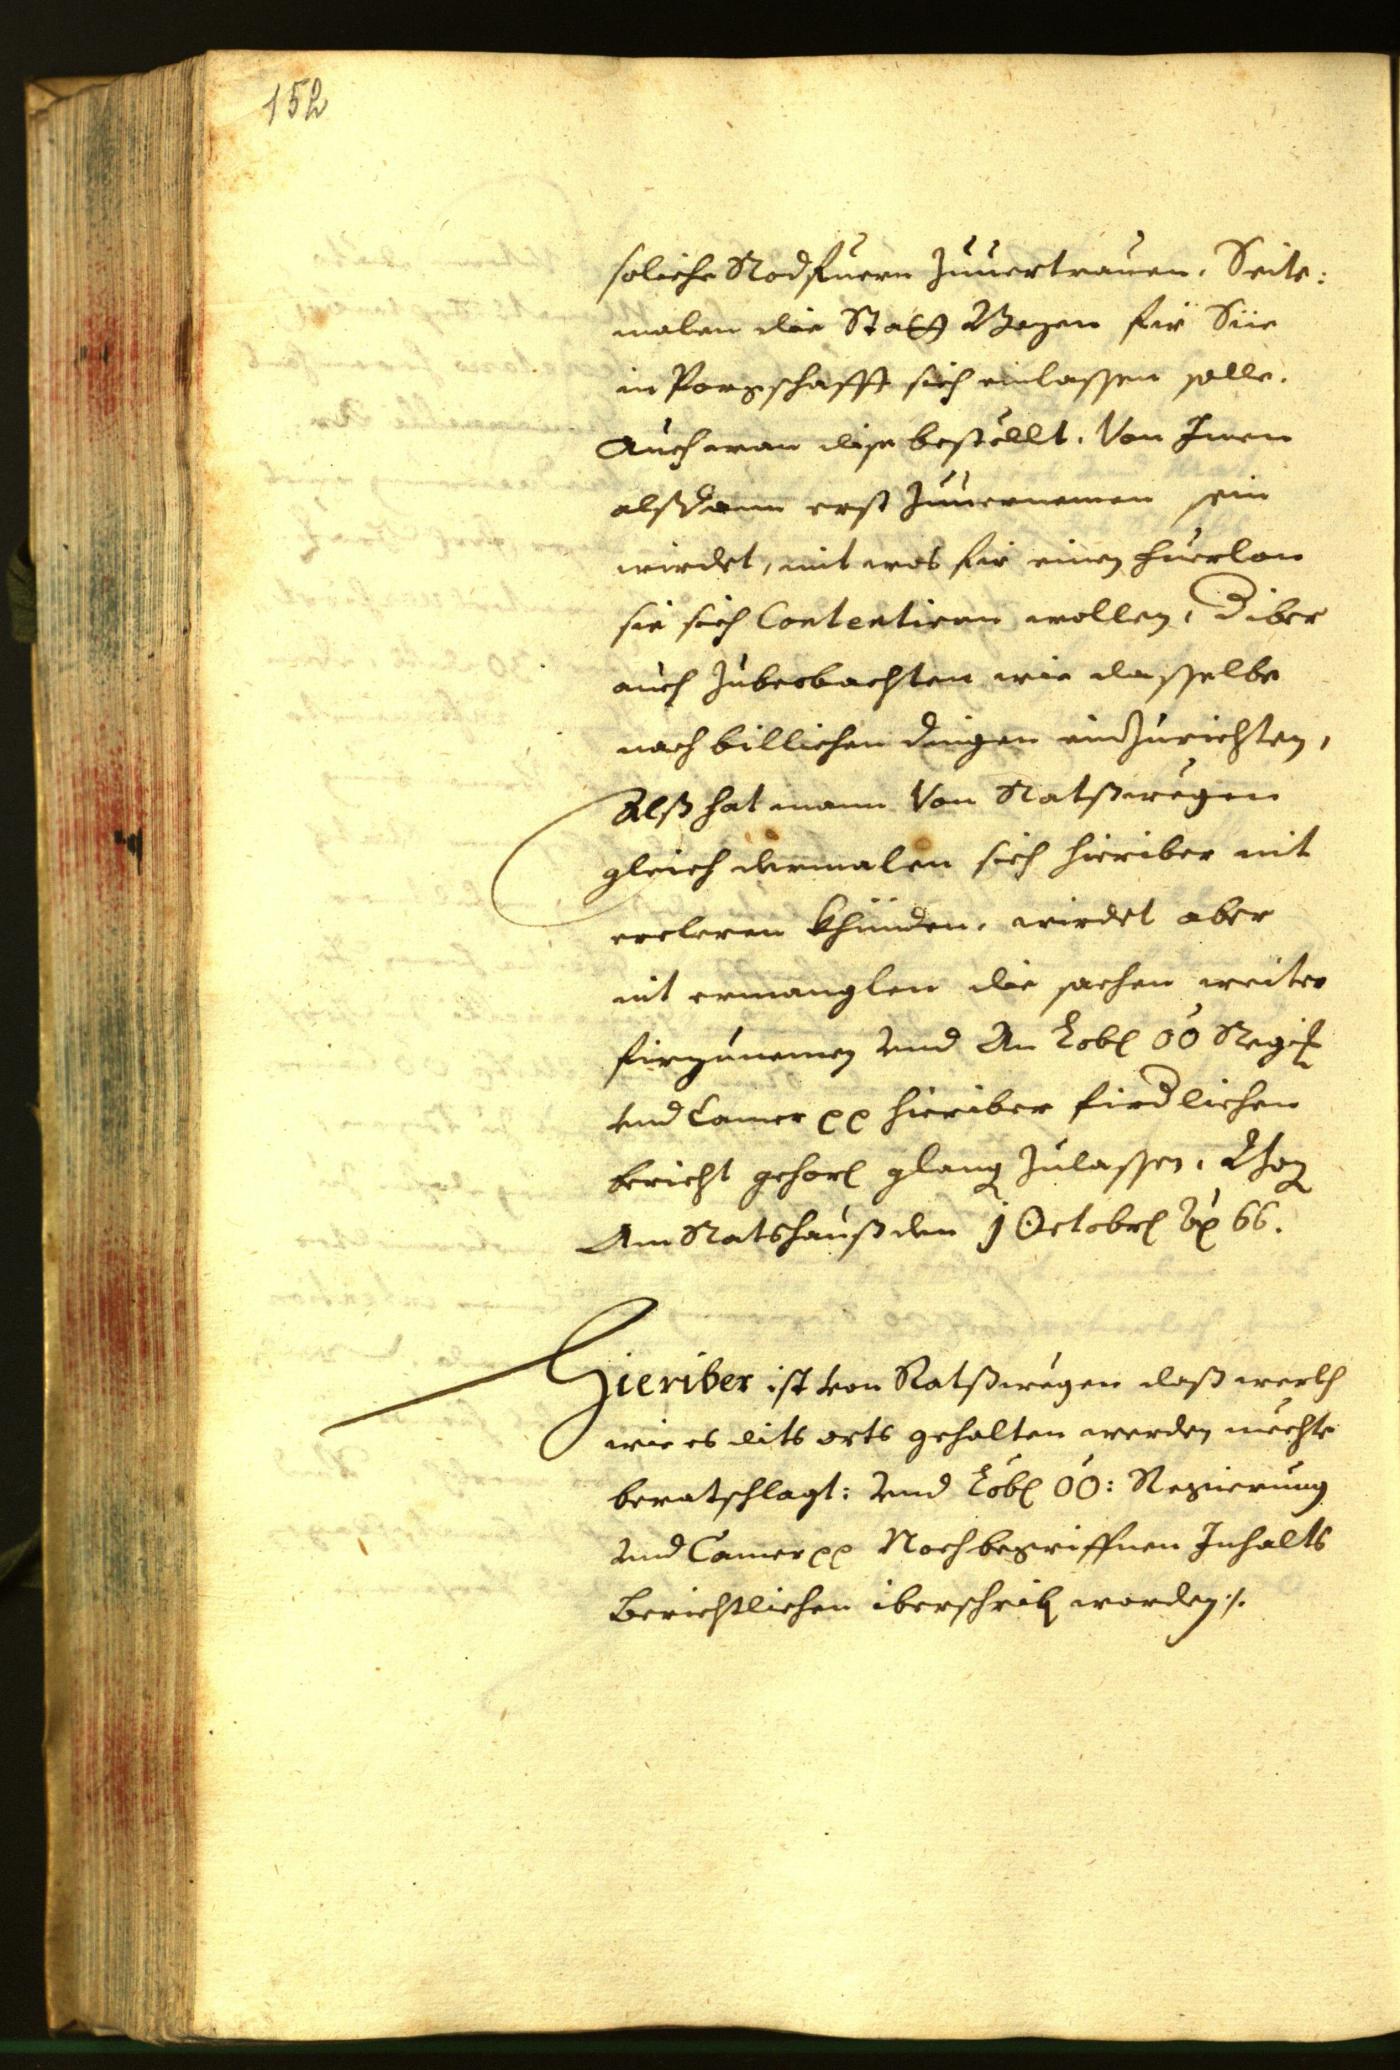 152
soliche Rodfuern zuuertrauen. Seite:
malen die Statt Bozen für Sii
in Porgschafft sich einlassen solle.
Auch wan dise bestellt. Von Inen
alßdann erst zuuernemen sein
wirdet, mit was fir einen fuerlon
sie sich Contentiern wollen,
auch zubeobachten wie dasselbe
nach billichen dingen einzurichten,
Alß hat mann Von Ratßwegen
gleich dermalen sich hieriber nit
ercleren khünden. wirdet aber
nit ermanglen die sachen weiter
firzunemen vnd An Lobl OÖ Regi
vnd Camer pp hieriber firdlichen
bericht gehorl glang zulassen.
Am Ratshauß den j Octobrl 66.
Hieriber ist von Ratßwegen daß werch
wie es dits orts gehalten werden mechte
beratschlagt: vnd Löbl OÖ: Regierung
vnd Camer pp Nochbegriffnen Inhalts
Berichtlichen iberschrib worden ·/.